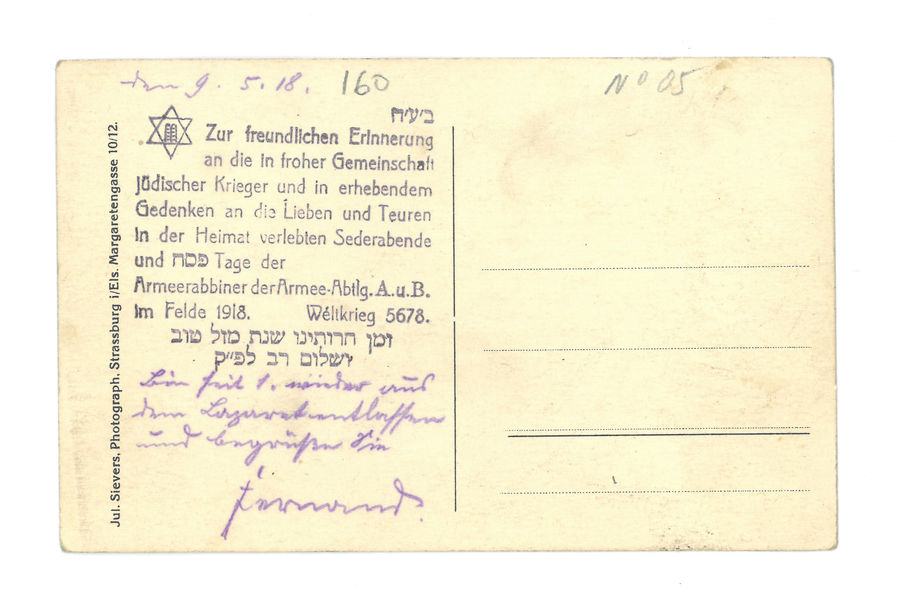 den 9. 5. 18.
160
Nº 05
ב׳ע׳ה
Zur freundlichen Erinnerung
an die in froher Gemeinschaft
jüdischer Krieger und in erhebendem
Gedenken an die Lieben und Teuren
in der Heimat verlebten Sederabende
und פסח Tage der
Armeerabbiner der Armee-Abtlg. A. u. B.
Im Felde 1918. Weltkrieg 5678.
זמן חרותינו שנת מזל טוב
ושלום רב לפ״ק
Bin seit 1. wieder aus
dem Lazaret entlassen
und begrüße Sie
Fernand.
Jul. Sievers, Photograph, Strassburg i/Els. Margaretengasse 10/12.